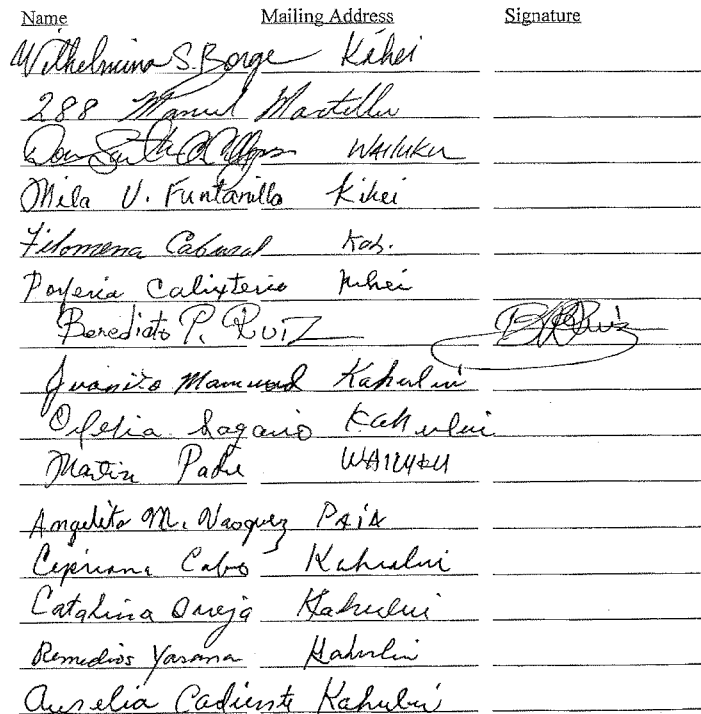 Name Mailing Address Signature
Wilhelmina S. Borge Kihei
288 Manuel
WAILUKU
Mila V. Funtanilla Kihei
Filomena Cabural Kah.
Calixterio Kihei
Benedicto P. RUIZ
Juanito Kahului
Ofelia Sagario Kahului
Martin Padre WAILUKU
Angelito M. Vasquez PAIA
Cipriana Cabo Kahului
Catalina Kahului
Remedios Yasana Kahului
Aurelia Cadiente Kahului